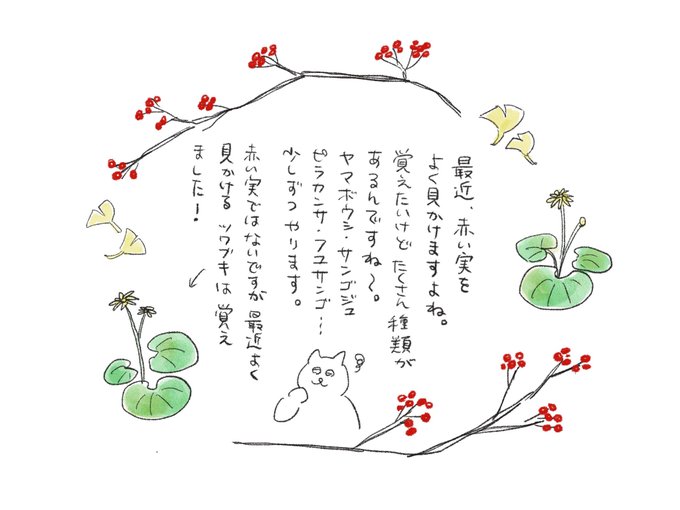 最近、赤い実を
よく見かけますよね。
覚えたいけど たくさん 種類が
あるんですね〜。
ヤマボウシ・サンゴジュ
ピラカンサ・フユサンゴ…
少しずつやります。
赤い実ではないですが 最近よく
見かける ツワブキは 覚え
ました!